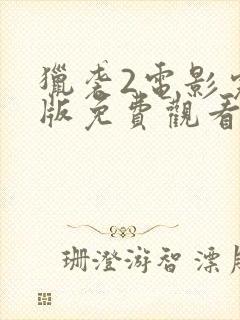 獵袭2電影完
版免費觀看
珊澄游智漂